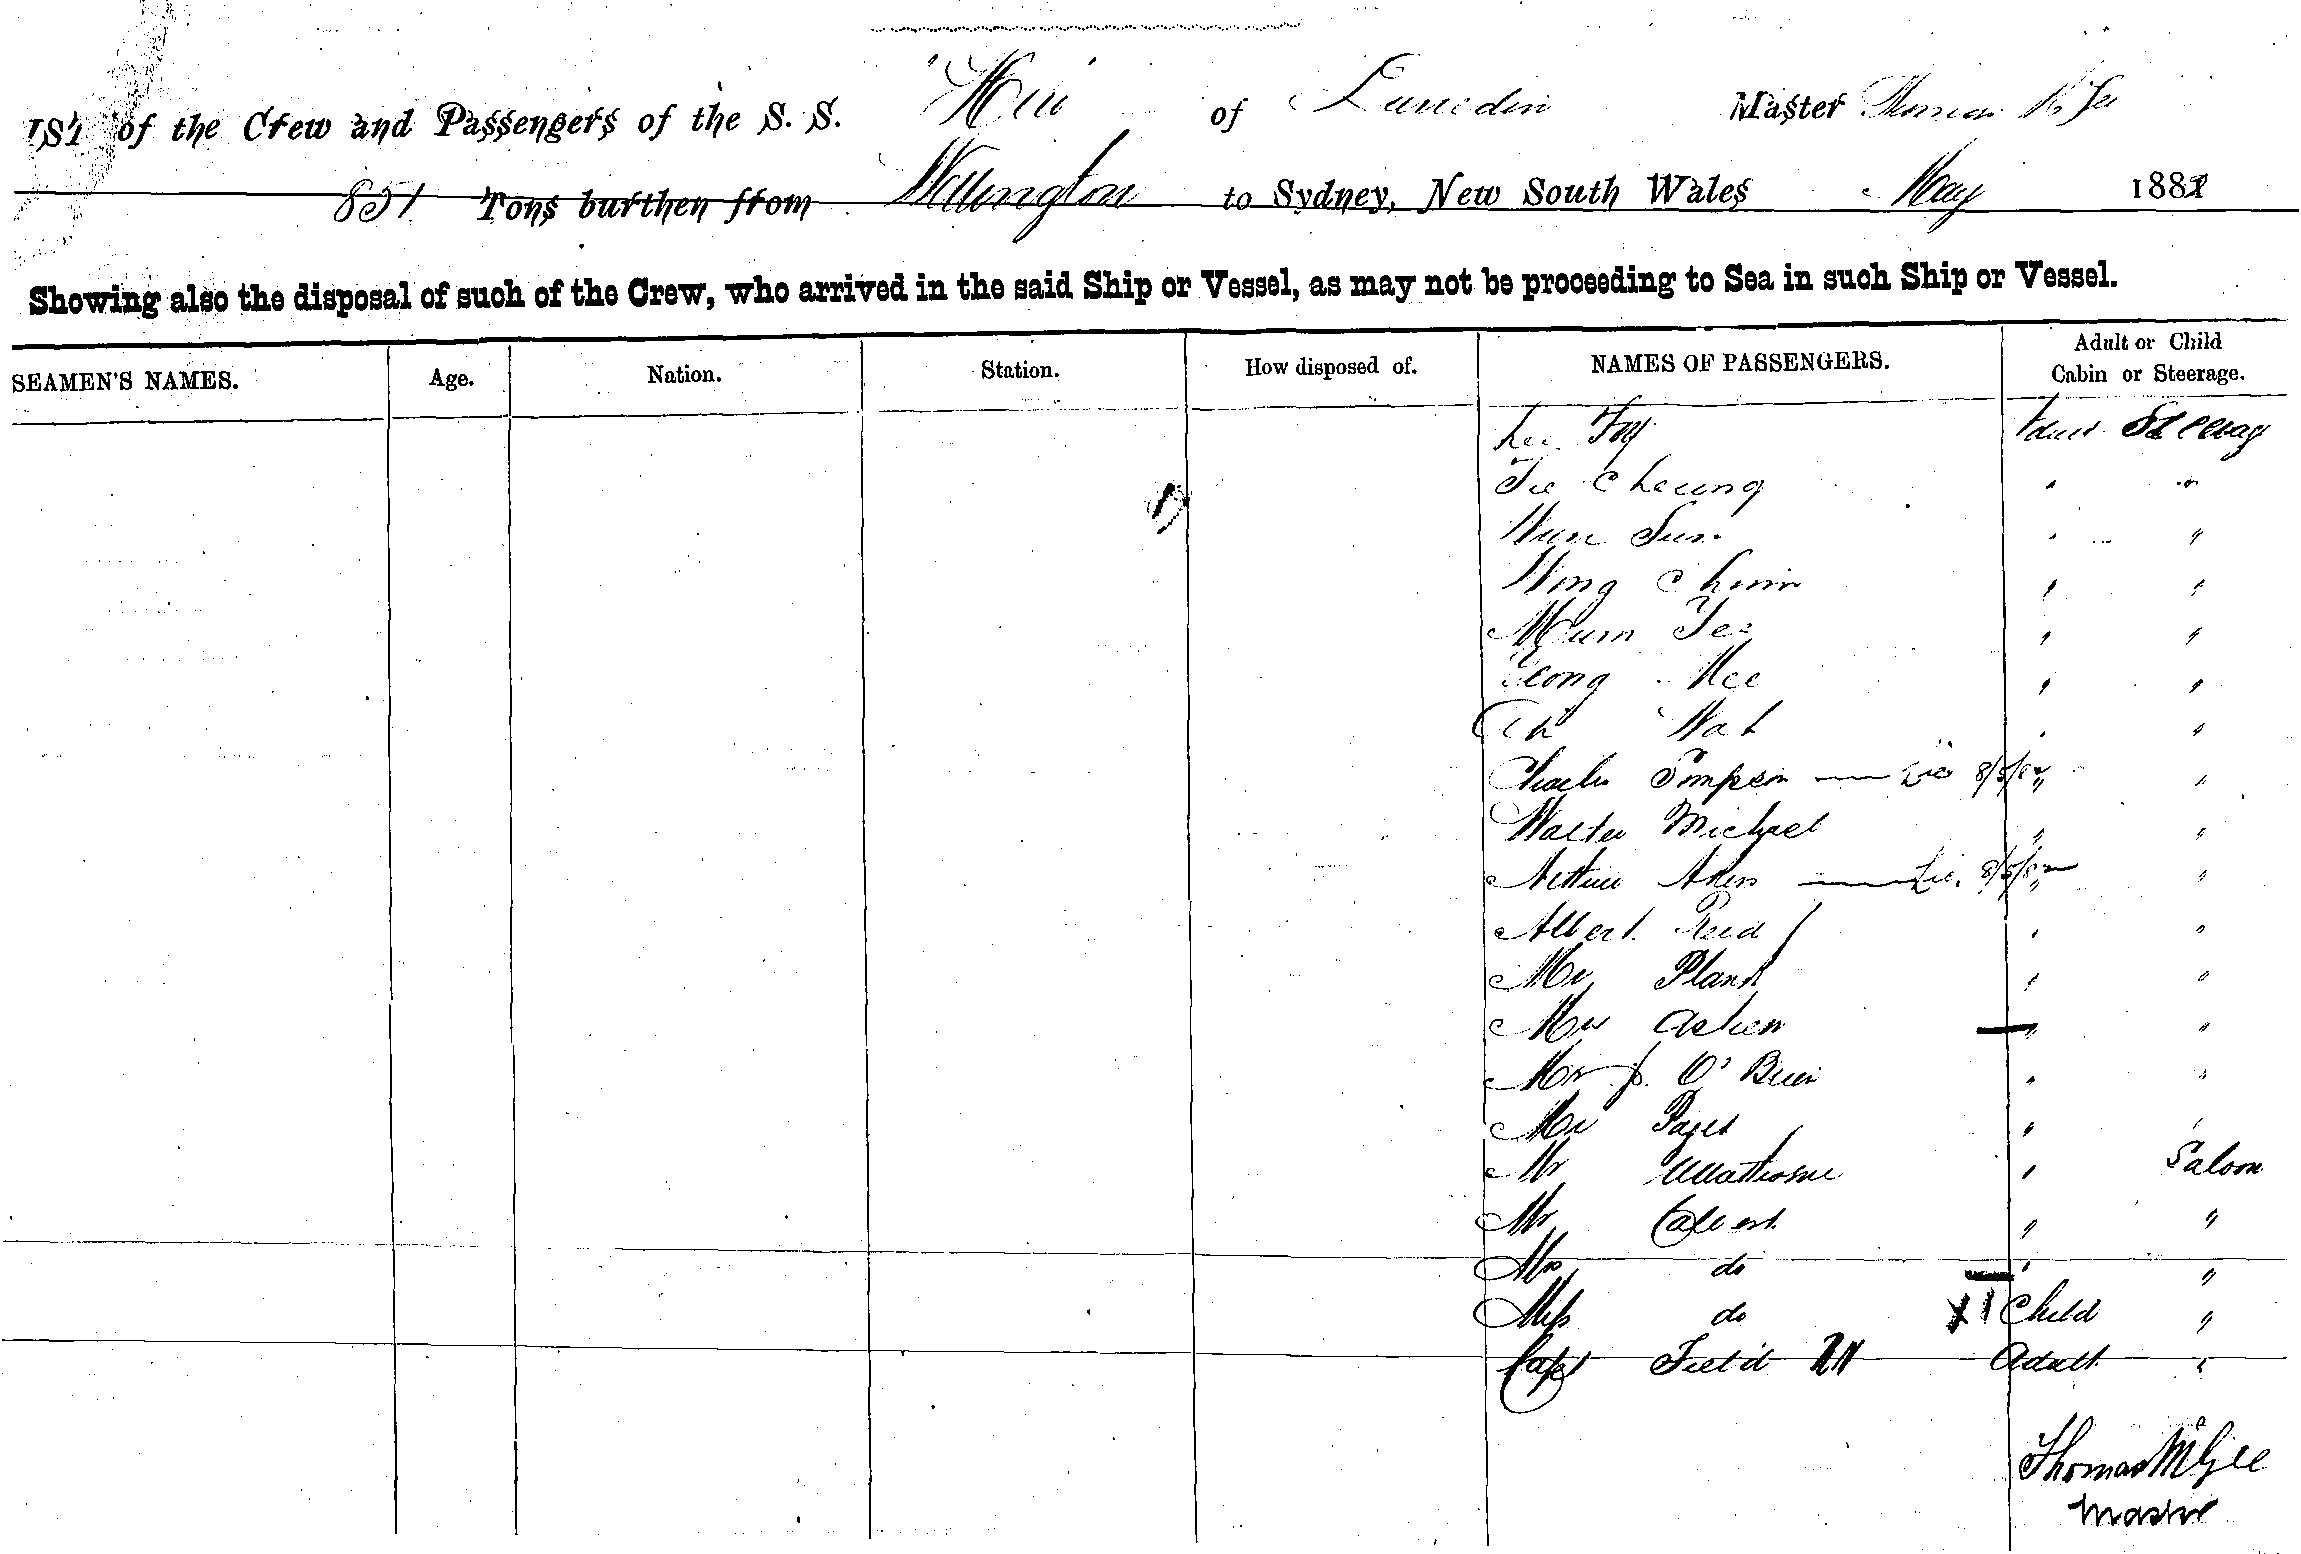 IST of the Crew and Passengers of the S. S. of Dunedin Master Thomas McGee
851 Tons burthen from Wellington to Sydney, New South Wales May 1882
Showing also the disposal of such of the Crew, who arrived in the said Ship or Vessel, as may not be proceeding to Sea in such Ship or Vessel.
SEAMEN'S NAMES. Age. Nation. Station. How disposed of. NAMES OF PASSENGERS. Adult or Child Cabin or Steerage.
Lee Foy Adult Steerage
Tie Cheung " "
Wun Sun " "
Wong Chinn " "
Mum Yee " "
Kee " "
Ah Wah " "
Charles Simpson 8/5/82 " "
Walter Michael " "
Arthur Akers 8/5/82 " "
Albert Reid " "
Mr Plank " "
Mrs Asken " "
Mr J. O'Brien " "
Mr Paget " "
Mr " Saloon
Mr Calvert " "
Mrs do " "
Miss do X 1 Child "
Capt Field RN Adult "
Thomas McGee
Master